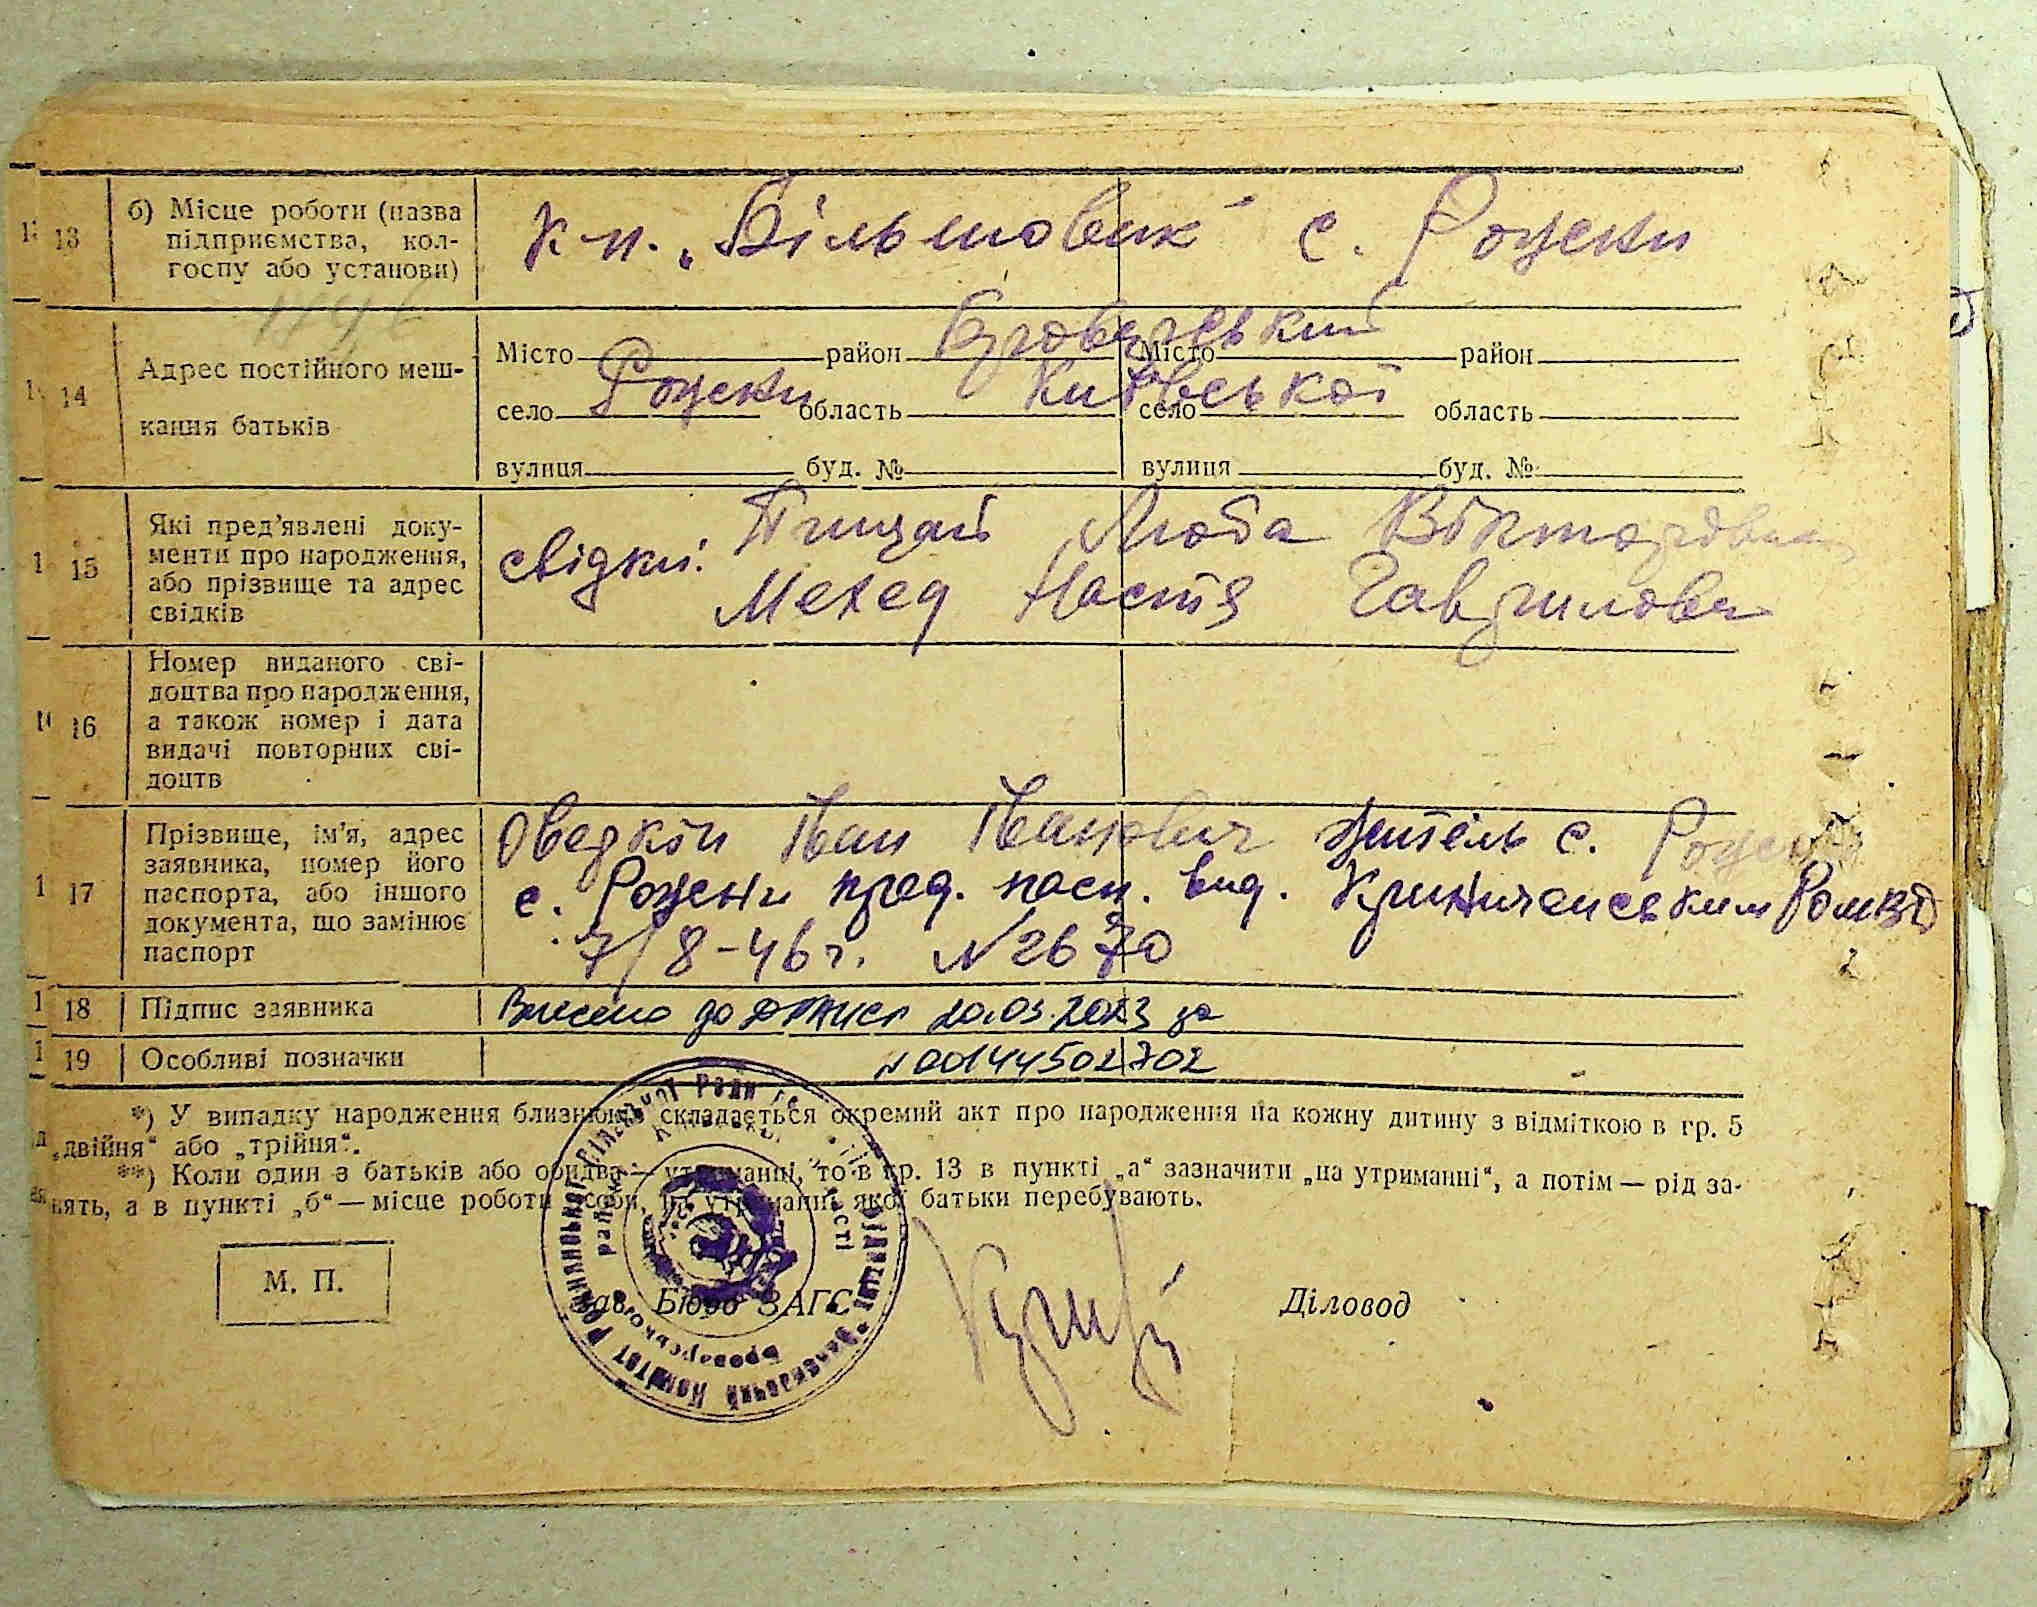 13 б) Місце роботи (назва
підприємства, кол-
госпу або установи)
к-п. „Більшовик" с. Рожени
14 Адрес постійного меш-
кання батьків
Місто район Броварський Місто район
село Рожени область Київської село область
вулиця буд. № вулиця буд. №
15 Які пред'явлені доку-
менти про народження,
або прізвище та адрес
свідків
свідки: Люба Вікторовна
Мехед Настя Гавриловна
16 Номер виданого сві-
доцтва про народження,
а також номер і дата
видачі повторних сві-
доцтв
17 Прізвище, ім'я, адрес
заявника, номер його
паспорта, або іншого
документа, що замінює
паспорт
Іван Іванович житель с.
с. Рожени пред. пасп. вид. Криничанським
7/8-46 г. N 2670
18 Підпис заявника
Внесено до ДРАЦСГ 20.03.2023 за
19 Особливі позначки
N 00144502702
*) У випадку народження близнюків складається окремий акт про народження на кожну дитину з відміткою в гр. 5
„двійня" або „трійня".
**) Коли один з батьків або обидва — утриманці, то в гр. 13 в пункті „а" зазначити „на утриманні", а потім — рід за-
нять, а в пункті „б" — місце роботи особи, на утриманні якої батьки перебувають.
М. П.
Зав. Бюро ЗАГС
Діловод